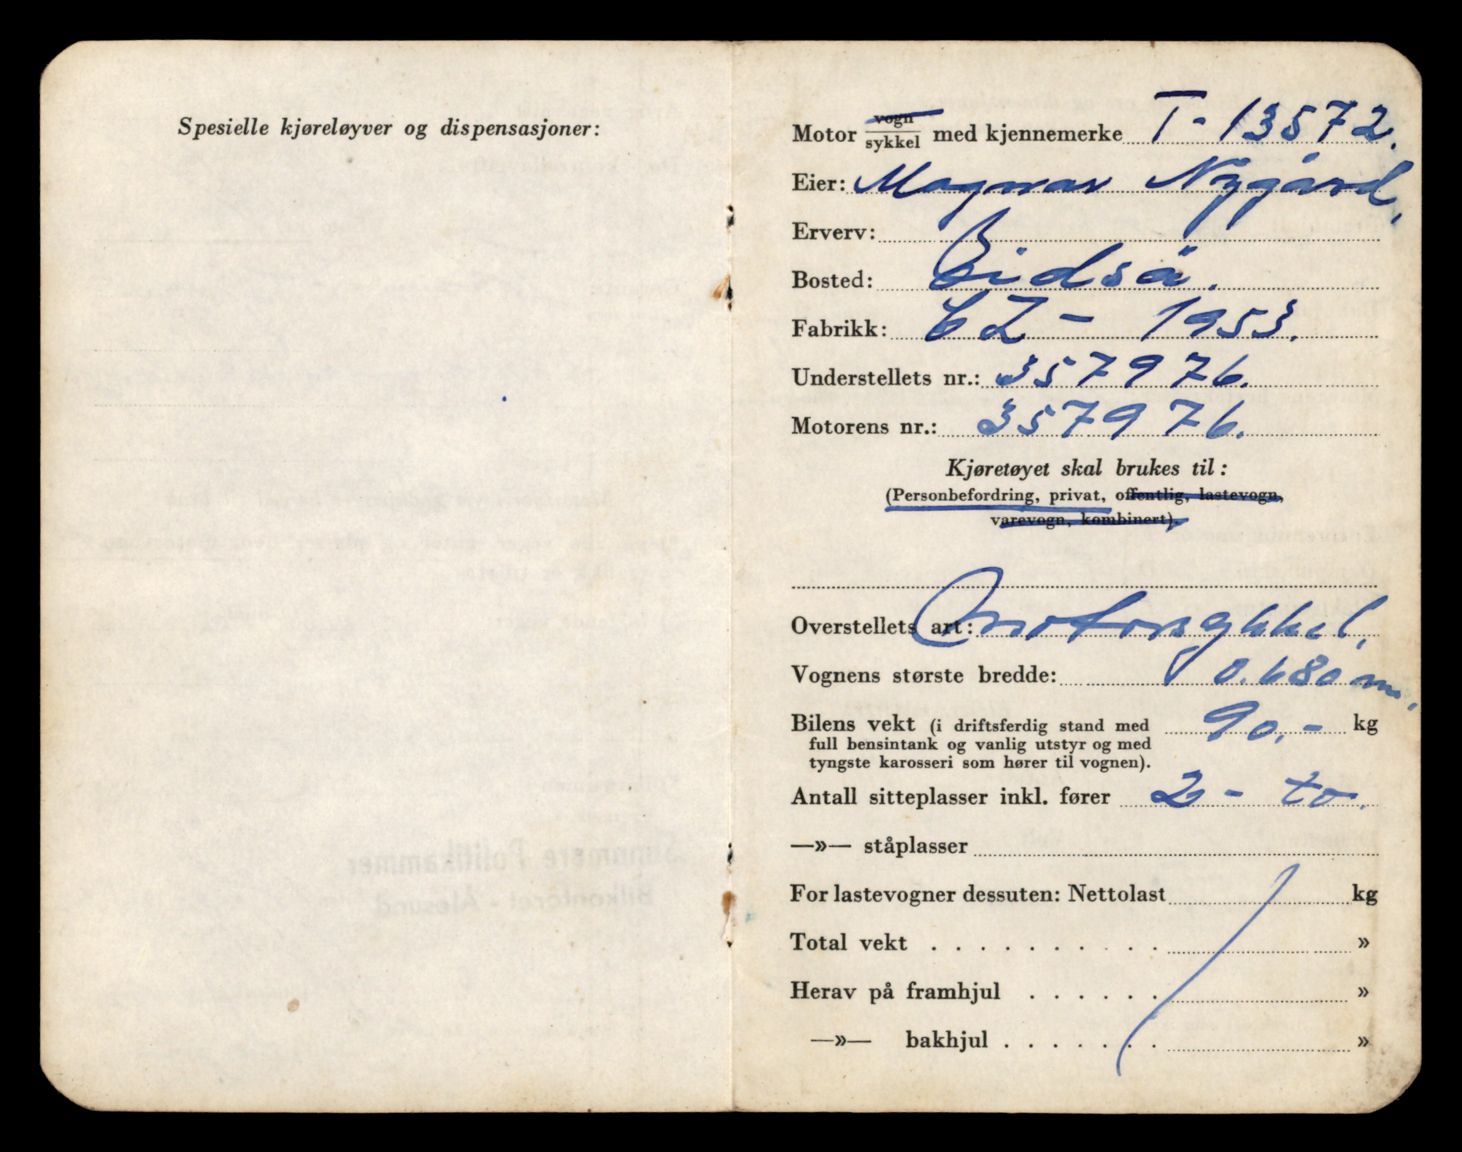 Spesielle kjøreløyver og dispensasjoner:
Motor vogn/sykkel med kjennemerke T-13572.
Eier: Magnar Nygård,
Erverv:
Bosted: Eidså.
Fabrikk: CZ - 1953.
Understellets nr.: 357976.
Motorens nr.: 357976.
Kjøretøyet skal brukes til:
(Personbefordring, privat, offentlig, lastevogn,
varevogn, kombinert).
Overstellets art: motorsykkel,
Vognens største bredde: 0.680 m,
Bilens vekt (i driftsferdig stand med 90,- kg
full bensintank og vanlig utstyr og med
tyngste karosseri som hører til vognen).
Antall sitteplasser inkl. fører 2 - to.
—»— ståplasser
For lastevogner dessuten: Nettolast kg
Total vekt . . . . . . . . . . »
Herav på framhjul . . . . . . »
—»— bakhjul . . . . . . . »
Sunnmøre Politikammer
Bilkontoret - Ålesund